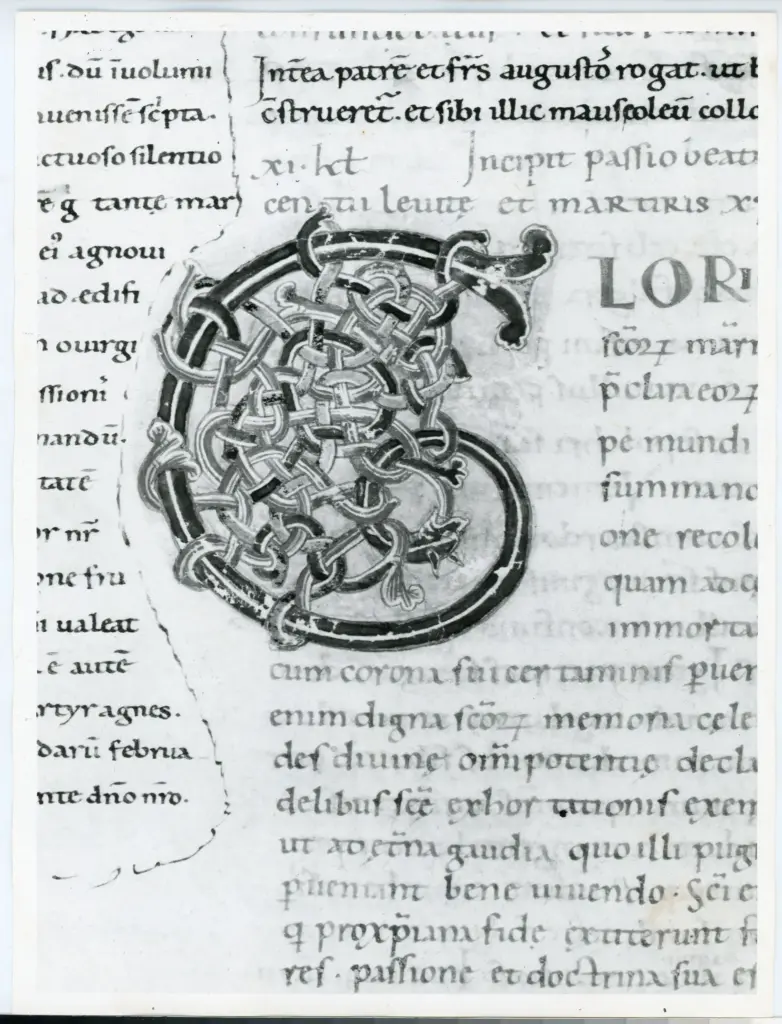 ıſ. dū īuolumi
ueniſſē ſc̄pta.
ctuoſo ſilentio
ē ḡ tantę mar
eı᾽ agnoui
ad. edifi
n ouirgı
ſſioni
nandū.
tatē
or nr̄
one fru
ualeat
ē autē
rtyr agnes.
daru᷑ februa
nte dn̄o nr̄o.
Intea patrē et fr̄s auguſto᷑ rogat. ut
c̄ſtruerēt. et ſibi illic mauſoleū collo
xi. kl̄ Incipit paſſio beat
centii leuitę et MARTIRIS
G LORI
ſc̄oꝝ mar
p̄clara eoꝝ
pe mundi
ſummano
one recol
quam ad
immorta
cum corona ſui certaminiſ ꝑuer
enim digna ſc̄oꝝ memoria cele
deſ diuinę om̄ipotentię decla
delibuſ ſc̄ę exhortationiſ exem
ut ad et̄na gaudia quo illi pug
ꝑueniant bene uiuendo. Sc̄i e
q pro xp̄iana fide extiterunt
reſ. paſſione et doctrina ſua